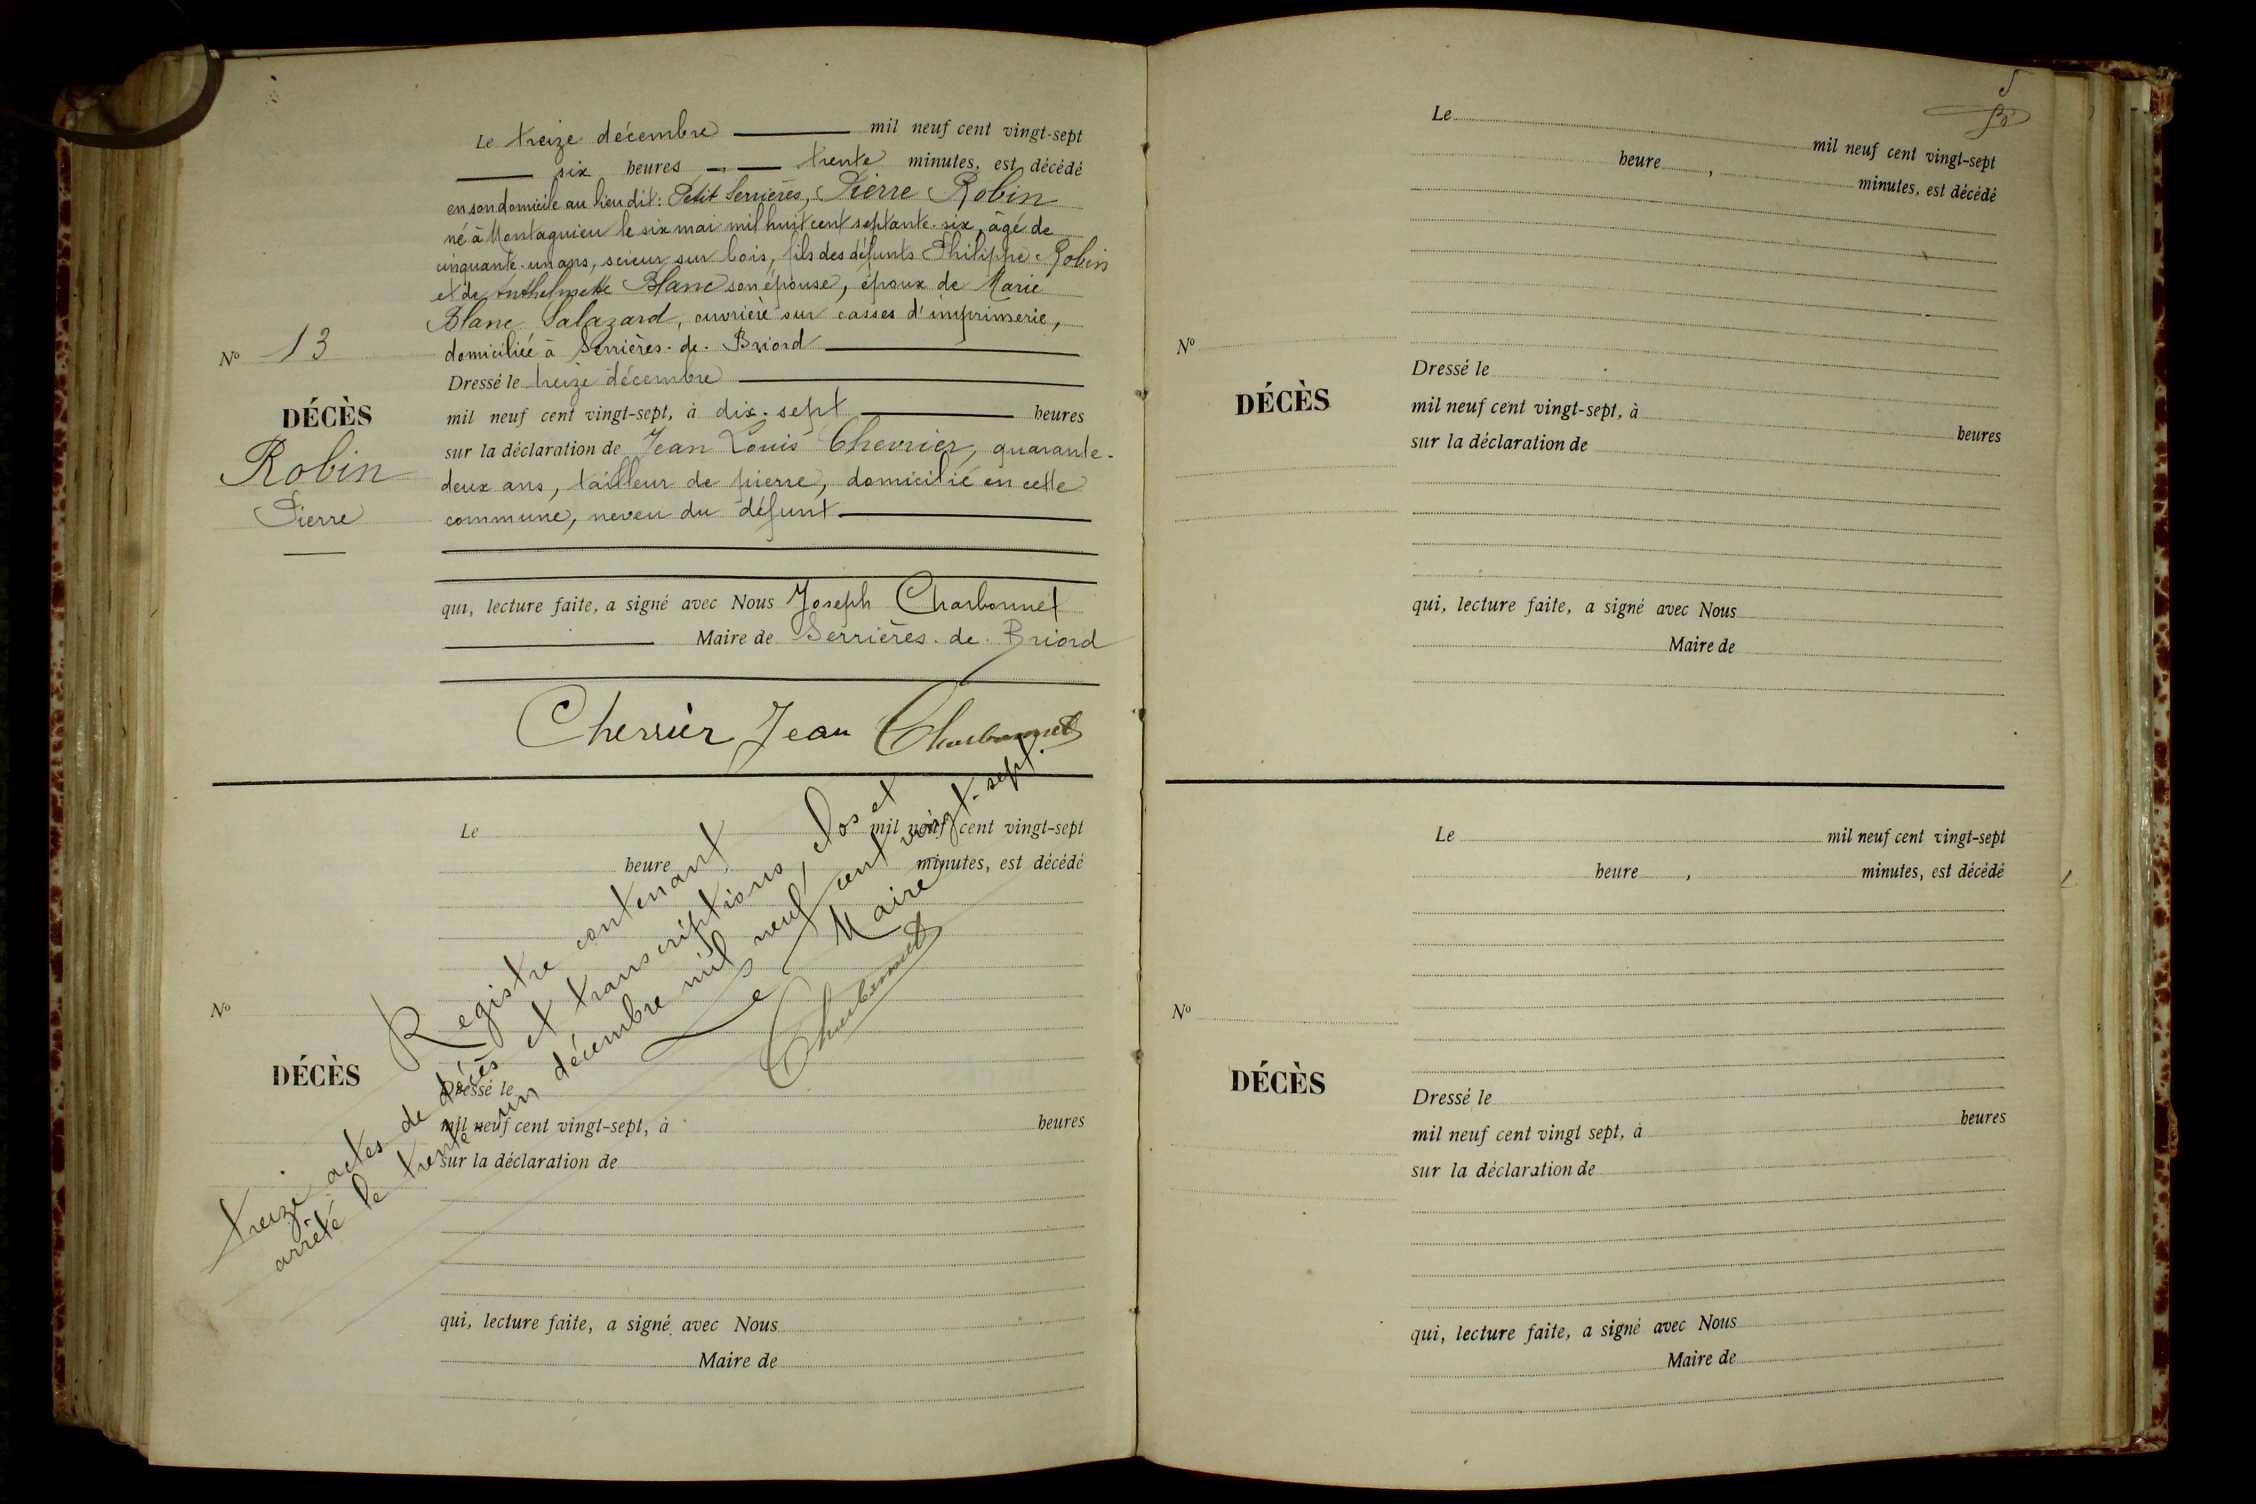 Le treize décembre mil neuf cent vingt-sept
six heures trente minutes, est décédé
en son domicile au lieu dit: Petit Serrières, Pierre Robin
né à Montagnieu le six mai mil huit cent septante-six, âgé de
cinquante-un ans, scieur sur bois, fils des défunts Philippe Robin
et de Anthelmette Blanc son épouse, époux de Marie
Blanc Salazard, ouvrière sur casses d'imprimerie,
domiciliée à Serrières-de-Briord
Dressé le treize décembre
mil neuf cent vingt-sept, à dix-sept heures
sur la déclaration de Jean Louis Chevrier, quarante-
deux ans, tailleur de pierre, domicilié en cette
commune, neveu du défunt
qui, lecture faite, a signé avec Nous Joseph Charbonnet
Maire de Serrières-de-Briord
Cherrier Jean Charbonnet
No 13
DÉCÈS
Robin
Pierre
Le mil neuf cent vingt-sept
heure minutes, est décédé
No
DÉCÈS
Dressé le
mil neuf cent vingt-sept, à heures
sur la déclaration de
qui, lecture faite, a signé avec Nous
Maire de
Registre contenant
treize actes de décès et transcriptions, clos et
arrêté le trente-un décembre mil neuf cent vingt-sept.
Le Maire
Charbonnet
5
Le mil neuf cent vingt-sept
heure , minutes, est décédé
No
DÉCÈS
Dressé le
mil neuf cent vingt-sept, à heures
sur la déclaration de
qui, lecture faite, a signé avec Nous
Maire de
Le mil neuf cent vingt-sept
heure , minutes, est décédé
No
DÉCÈS
Dressé le
mil neuf cent vingt sept, à heures
sur la déclaration de
qui, lecture faite, a signé avec Nous
Maire de